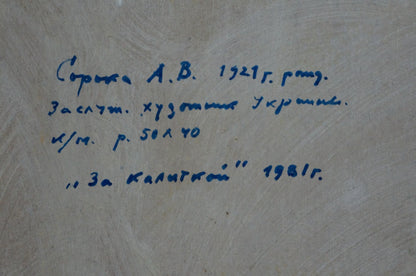 Сорока А.В. 1921г. рожд.
Заслуж. художник Украины.
к/м. р. 50х40
„За калиткой" 1981г.